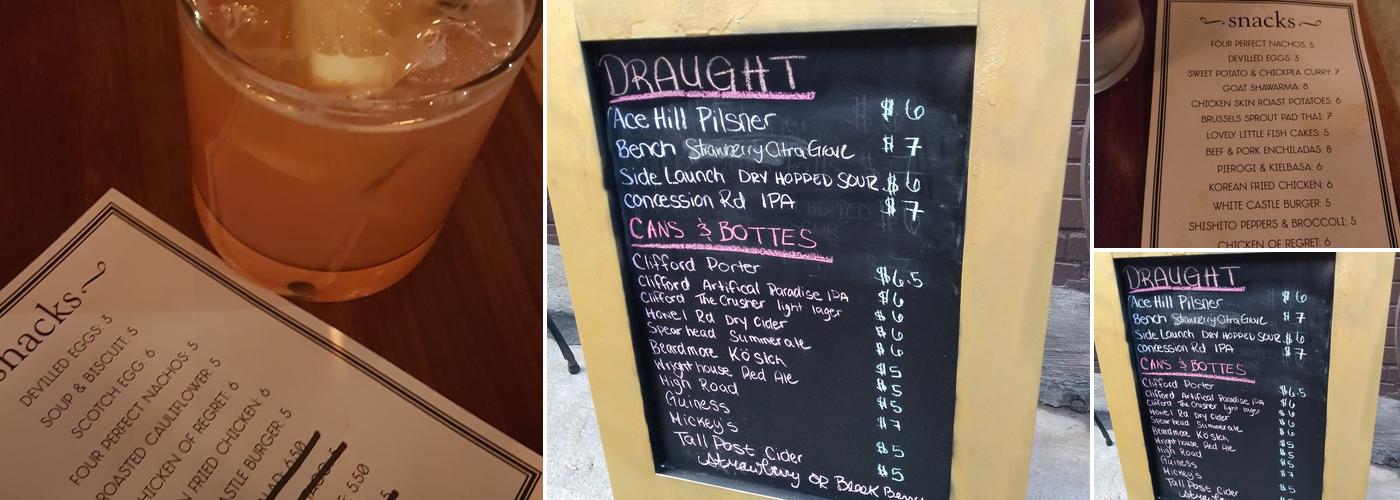 snacks
DEVILLED EGGS: 3
SOUP & BISCUIT: 5
SCOTCH EGG: 6
FOUR PERFECT NACHOS: 5
ROASTED CAULIFLOWER: 5
CHICKEN OF REGRET: 6
FRIED CHICKEN: 6
CASTLE BURGER: 5
6.50
5.50
DRAUGHT
Ace Hill Pilsner $6
Bench Strawberry Citra Grove $7
Side Launch DRY HOPPED SOUR $6
concession Rd IPA $7
CANS & BOTTES
Clifford Porter $6.5
Clifford Artifical Paradise IPA $6
Clifford The Crusher light lager $6
Howel Rd Dry Cider $6
Spearhead Summer ale $6
Beardmore Kösich $5
Wright house Red Ale $5
High Road $5
Guiness $7
Mickey's
Tall Post Cider $5
Strawberry OR Black Berry $5
snacks
FOUR PERFECT NACHOS: 5
DEVILLED EGGS: 3
SWEET POTATO & CHICKPEA CURRY: 7
GOAT SHAWARMA: 8
CHICKEN SKIN ROAST POTATOES: 6
BRUSSELS SPROUT PAD THAI: 7
LOVELY LITTLE FISH CAKES: 5
BEEF & PORK ENCHILADAS: 8
PIEROGI & KIELBASA: 6
KOREAN FRIED CHICKEN: 6
WHITE CASTLE BURGER: 5
SHISHITO PEPPERS & BROCCOLI: 5
CHICKEN OF REGRET: 6
DRAUGHT
Ace Hill Pilsner $6
Bench Strawberry Citra Grove $7
Side Launch DRY HOPPED SOUR $6
concession Rd IPA $7
CANS & BOTTES
Clifford Porter $6.5
Clifford Artifical Paradise IPA $6
Clifford The Crusher light lager $6
Howel Rd Dry Cider $6
Spearhead Summer ale $6
Beardmore Kösich $5
Wright house Red Ale $5
High Road $5
Guiness $7
Mickey's
Tall Post Cider $5